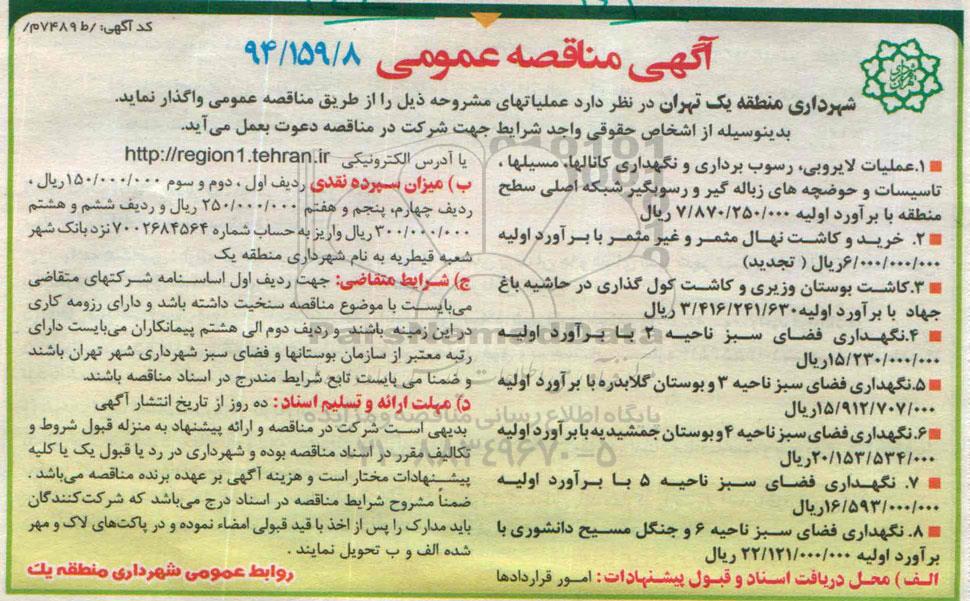 کد آگهی: /ط ۷۴۸۹م/
آگهی مناقصه عمومی ۹۴/۱۵۹/۸
شهرداری منطقه یک تهران در نظر دارد عملیاتهای مشروحه ذیل را از طریق مناقصه عمومی واگذار نماید.
بدینوسیله از اشخاص حقوقی واجد شرایط جهت شرکت در مناقصه دعوت بعمل می‌آید.
۱.عملیات لایروبی، رسوب برداری و نگهداری کانالها، مسیلها ،
تاسیسات و حوضچه های زباله گیر و رسوبگیر شبکه اصلی سطح
منطقه با برآورد اولیه ۷/۸۷۰/۲۵۰/۰۰۰ ریال
۲. خرید و کاشت نهال مثمر و غیر مثمر با برآورد اولیه
۶/۰۰۰/۰۰۰/۰۰۰ریال ( تجدید)
۳.کاشت بوستان وزیری و کاشت کول گذاری در حاشیه باغ
جهاد با برآورد اولیه۳/۴۱۶/۲۴۱/۶۳۰ ریال
۴.نگهداری فضای سبز ناحیه ۲ با برآورد اولیه
۱۵/۲۳۰/۰۰۰/۰۰۰ریال
۵.نگهداری فضای سبز ناحیه ۳ و بوستان گلابدره با برآورد اولیه
۱۵/۹۱۲/۷۰۷/۰۰۰ریال
۶.نگهداری فضای سبز ناحیه ۴ و بوستان جمشیدیه با برآورد اولیه
۲۰/۱۵۳/۵۳۴/۰۰۰ریال
۷. نگهداری فضای سبز ناحیه ۵ با برآورد اولیه
۱۶/۵۹۳/۰۰۰/۰۰۰ریال
۸. نگهداری فضای سبز ناحیه ۶ و جنگل مسیح دانشوری با
برآورد اولیه ۲۲/۱۲۱/۰۰۰/۰۰۰ ریال
الف) محل دریافت اسناد و قبول پیشنهادات: امور قراردادها
یا آدرس الکترونیکی http://region1.tehran.ir
ب) میزان سپرده نقدی ردیف اول ، دوم و سوم ۱۵۰/۰۰۰/۰۰۰ریال ،
ردیف چهارم، پنجم و هفتم ۲۵۰/۰۰۰/۰۰۰ ریال و ردیف ششم و هشتم
۳۰۰/۰۰۰/۰۰۰ ریال واریز به حساب شماره ۷۰۰۲۶۸۴۵۶۴ نزد بانک شهر
شعبه قیطریه به نام شهرداری منطقه یک
ج) شرایط متقاضی: جهت ردیف اول اساسنامه شرکتهای متقاضی
می‌بایست با موضوع مناقصه سنخیت داشته باشد و دارای رزومه کاری
در این زمینه باشند و ردیف دوم الی هشتم پیمانکاران می‌بایست دارای
رتبه معتبر از سازمان بوستانها و فضای سبز شهرداری شهر تهران باشند
و ضمنا می بایست تابع شرایط مندرج در اسناد مناقصه باشند.
د) مهلت ارائه و تسلیم اسناد : ده روز از تاریخ انتشار آگهی
بدیهی است شرکت در مناقصه و ارائه پیشنهاد به منزله قبول شروط و
تکالیف مقرر در اسناد مناقصه بوده و شهرداری در رد یا قبول یک یا کلیه
پیشنهادات مختار است و هزینه آگهی بر عهده برنده مناقصه می‌باشد .
ضمناً مشروح شرایط مناقصه در اسناد درج می‌باشد که شرکت‌کنندگان
باید مدارک را پس از اخذ با قید قبولی امضاء نموده و در پاکت‌های لاک و مهر
شده الف و ب تحویل نمایند .
روابط عمومی شهرداری منطقه یک
ParsNamadData
پایگاه اطلاع رسانی مناقصه و مزایده
۰۲۱-۸۸۳۴۹۶۷۰-۵